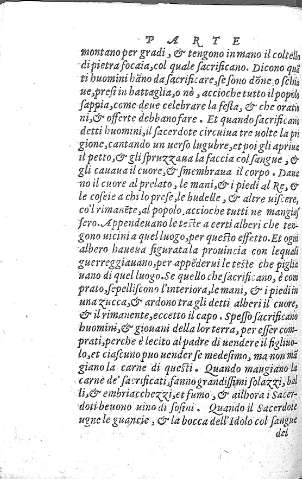 PARTE
montano per gradi, & tengono in mano il coltello
di pietra focaia, col quale sacrificano. Dicono quā
ti huomini hāno da sacrificare, se sono dōne, o schia
ue, presi in battaglia, o nò, accioche tutto il popolo
sappia, come deue celebrare la festa, & che oratio
ni, & offerte debban o fare. Et quando sacrificano
detti huomini, il sacerdote circuiua tre uolte la pri
gione, cantando un uerso lugubre, et poi gli apriua
il petto, & gli spruzzaua la faccia col sangue, &
gli cauaua il cuore, & smembraua il corpo. Daua
no il cuore al prelato, le mani, & i piedi al Re, &
le coscie a chi lo prese, le budelle, & altre uiscere,
co'l rimanēte, al popolo, accioche tutti ne mangias
sero. Appendeuano le teste a certi alberi che ten-
gono uicini a quel luogo, per questo effetto. Et ogni
albero haueua figurata la prouincia con lequali
guerreggiauano, per appēderui le teste che piglia
uano di quel luogo. Se quello che sacrificano, è com
prato, sepelliscono l'interiora, le mani, & i piedi in
una zucca, & ardono tra gli detti alberi il cuore,
& il rimanente, eccetto il capo. Spesso sacrificano
huomini, & giouani della lor terra, per esser com-
prati, perche è lecito al padre di uendere il figliuo-
lo, et ciascuno puo uender se medesimo, ma non mā
giano la carne di questi. Quando mangiano la
carne de' sacrificati, fanno grandissimi solazzi, bal
li, & embriacchezzi, et fumo, & allhora i Sacer-
doti beuono uino di sosini. Quando il Sacerdote
ugne le guancie, & la bocca dell'Idolo col sangue
del